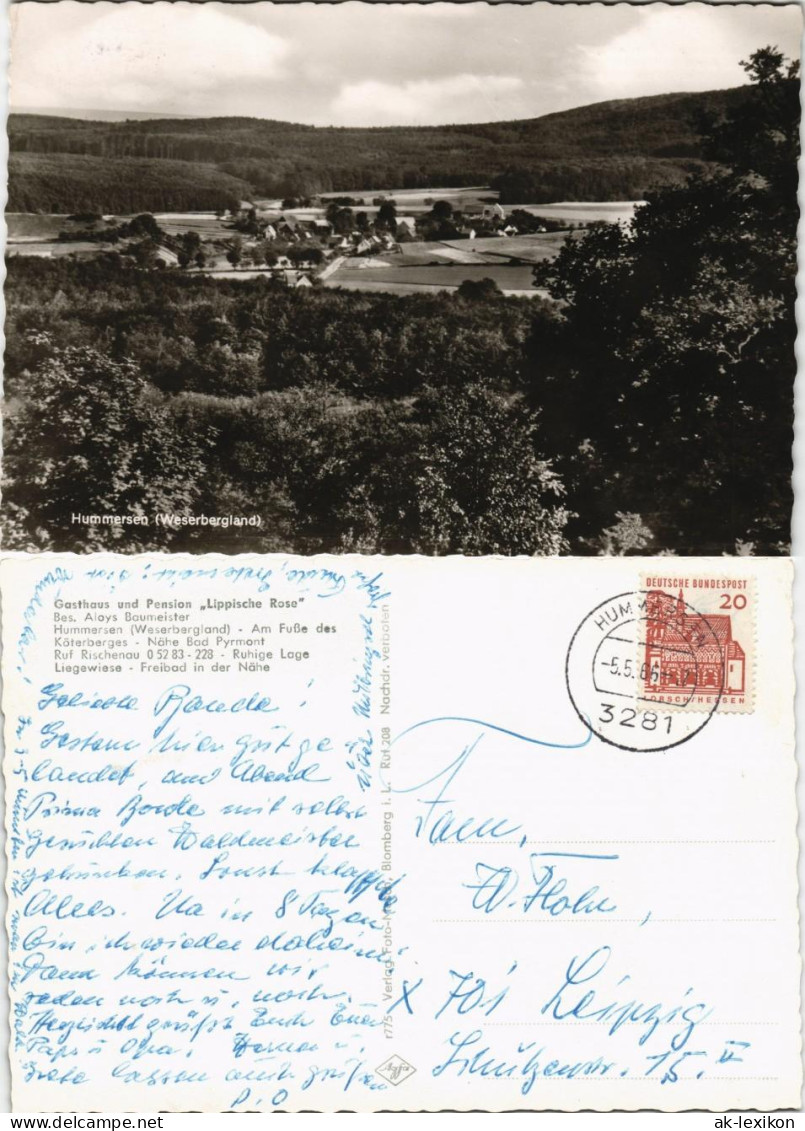 Hummersen (Weserbergland)
Gasthaus und Pension „Lippische Rose"
Bes. Aloys Baumeister
Hummersen (Weserbergland) - Am Fuße des
Käterberges - Nähe Bad Pyrmont
Ruf Rischenau 0 52 83 - 228 - Ruhige Lage
Liegewiese - Freibad in der Nähe
Geliebte Bande!
Gestern hier gut ge
landet, und Abend
Prima Bowle mit selbst
gesuchten Waldmeister
getrunken. Sonst klappte
Alles. Na in 8 Tagen
bin ich wieder daheim.
Dann können wir
reden noch u. noch.
Herzlichst grüßt Euch Euer
Papa u Opa. Herman u.
Grete lassen auch grüßen
P. O
r775 Verlag Foto- Blomberg i. L. Ruf 208 Nachdr. verboten
DEUTSCHE BUNDESPOST
20
LORSCH/HESSEN
HUMMERSEN
-5.5.66
3281
Fam.
W. Flohr,
X 701 Leipzig
Schützenstr. 15. II
ak-lexikon